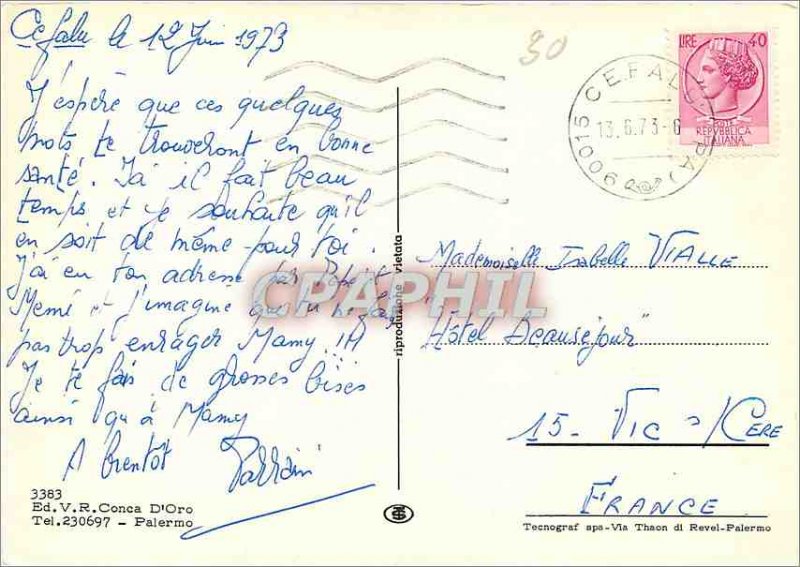 Cefalu le 12 Juin 1973
J'espère que ces quelques
mots te trouveront en bonne
santé. Ici il fait beau
temps et je souhaite qu'il
en soit de même pour toi.
J'ai eu ton adresse par
Mémé et j'imagine que tu ne fais
pas trop enrager Mamy.
Je te fais de grosses bises
ainsi qu'à Mamy
A bientôt Parrain
3383
Ed. V.R. Conca D'Oro
Tel. 230697 - Palermo
riproduzione vietata
CPAPHIL
30
90015 CEFALU (PA)
13.6.73-6
LIRE 40
POSTE
REPVBBLICA
ITALIANA
Mademoiselle Isabelle VIALLE
"Hôtel Beauséjour"
15- VIC s/CERE
FRANCE
Tecnograf sps-Via Thaon di Revel-Palermo